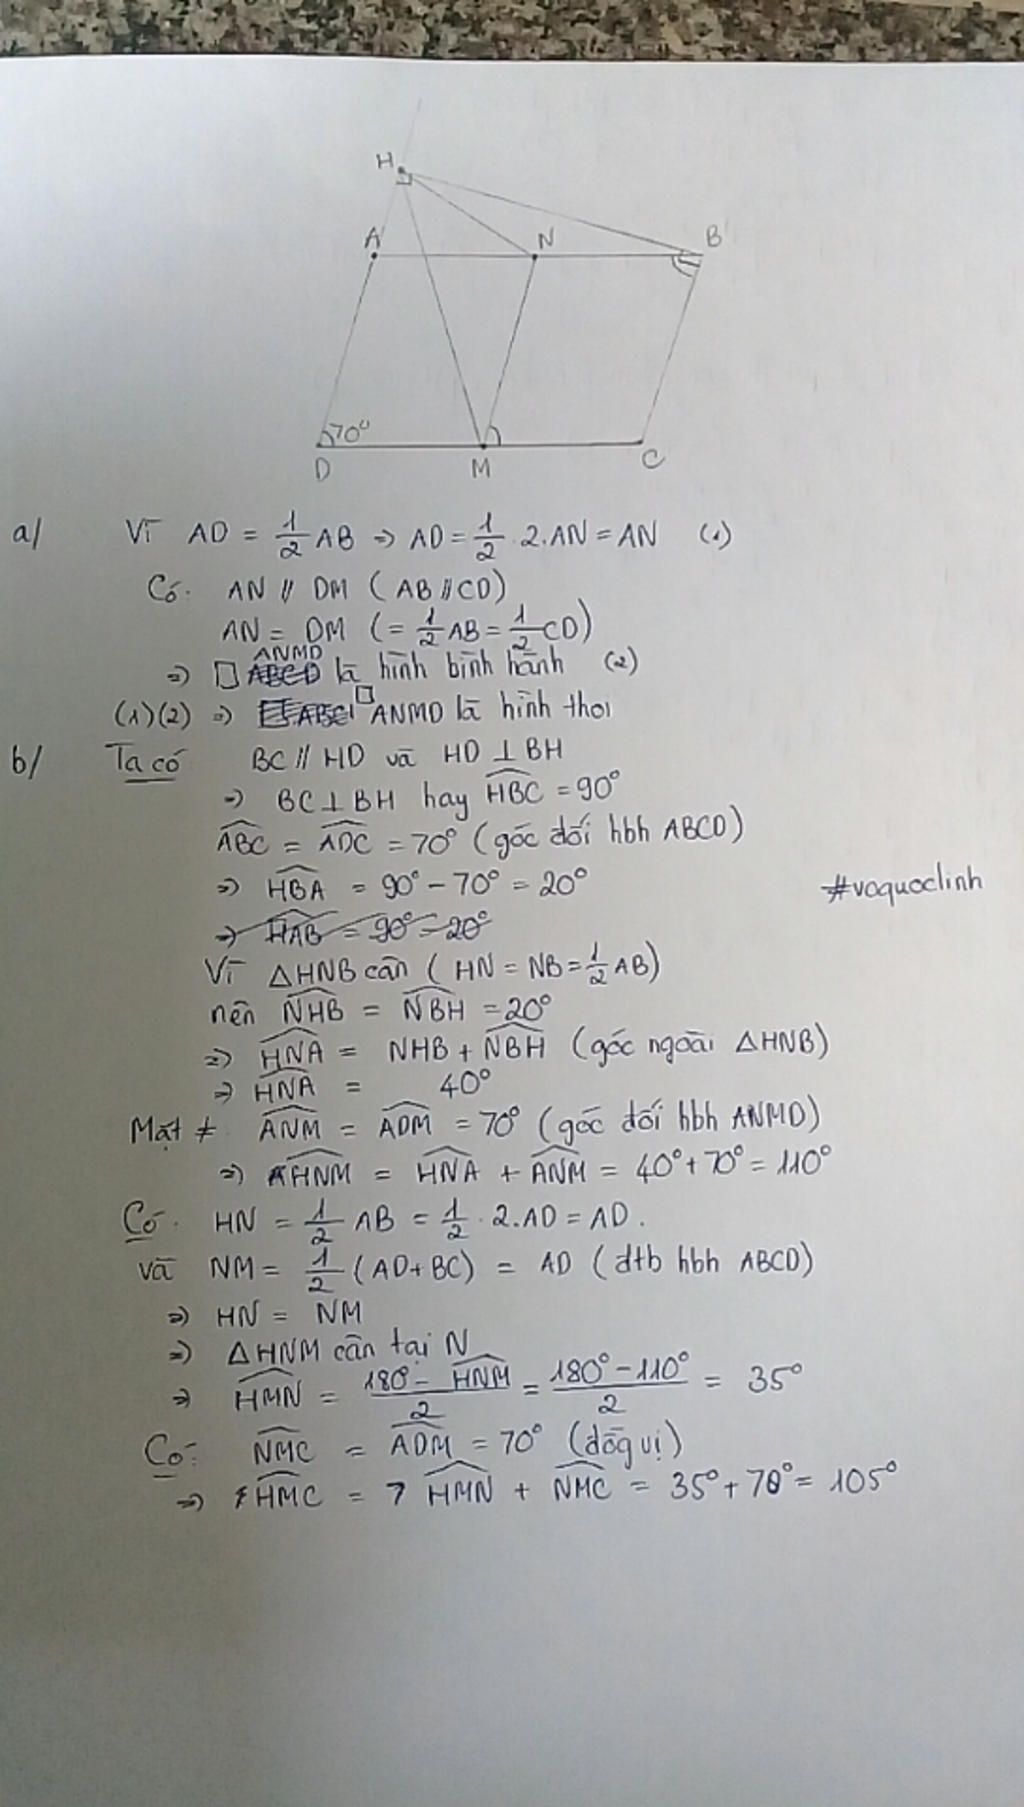 H
A
N
B
70°
D
M
C
a/ Vì AD = 1/2 AB => AD = 1/2 . 2.AN = AN (1)
Có. AN // DM (AB // CD)
AN = DM (= 1/2 AB = 1/2 CD)
ANMD
=> □ ABCD là hình bình hành (2)
(1)(2) => □ ANMD là hình thoi
b/ Ta có BC // HD và HD ⊥ BH
=> BC ⊥ BH hay HBC = 90°
ABC = ADC = 70° (góc đối hbh ABCD)
=> HBA = 90° - 70° = 20°
#voquoclinh
=> HAB = 90° - 20°
Vì △HNB cân (HN = NB = 1/2 AB)
nên NHB = NBH = 20°
=> HNA = NHB + NBH (góc ngoài △HNB)
=> HNA = 40°
Mặt ≠. ANM = ADM = 70° (góc đối hbh ANMD)
=> HNM = HNA + ANM = 40° + 70° = 110°
Có. HN = 1/2 AB = 1/2 . 2.AD = AD.
và NM = 1/2 (AD + BC) = AD (đtb hbh ABCD)
=> HN = NM
=> △HNM cân tại N
=> HMN = (180° - HNM)/2 = (180° - 110°)/2 = 35°
Có: NMC = ADM = 70° (đồg vị)
=> HMC = HMN + NMC = 35° + 70° = 105°